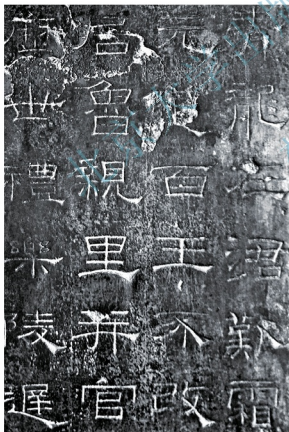 青龍在涒歎霜
元道百王不改
居魯親里并官
歷世禮樂陵遲